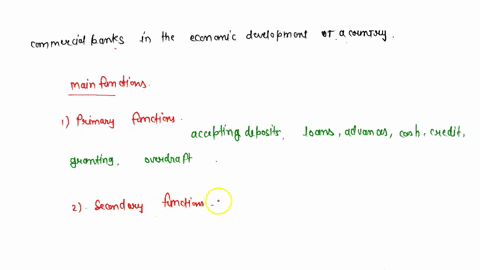 commercial banks in the economic development of a country.
main functions.
1) Primary functions.
accepting deposits, loans, advances, cash, credit,
granting, overdraft .
2). Secondary functions.